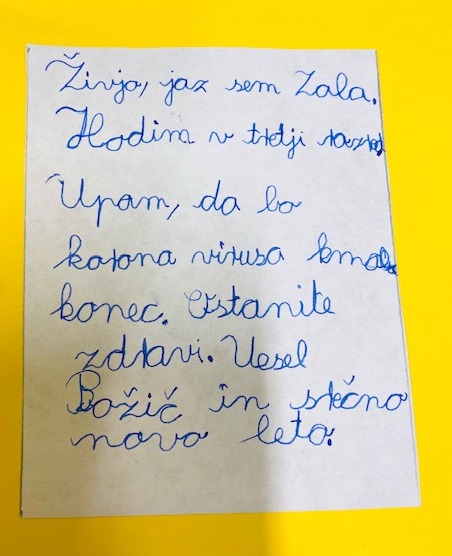 Živjo, jaz sem Zala.
Hodim v tretji razred.
Upam, da bo
korona virusa kmalu
konec. Ostanite
zdravi. Vesel
Božič in srečno
novo leto.